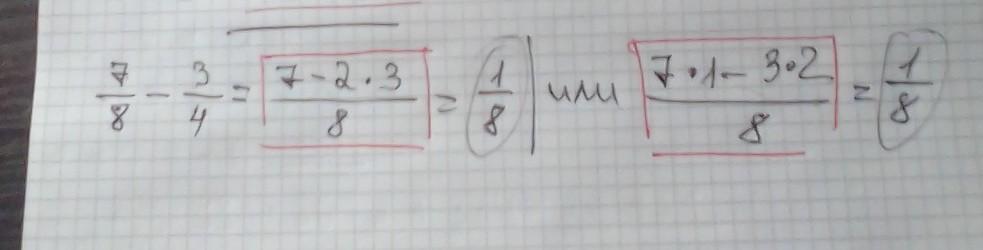 7/8 - 3/4 = (7 - 2 · 3)/8 = 1/8 | или (7 · 1 - 3 · 2)/8 = 1/8